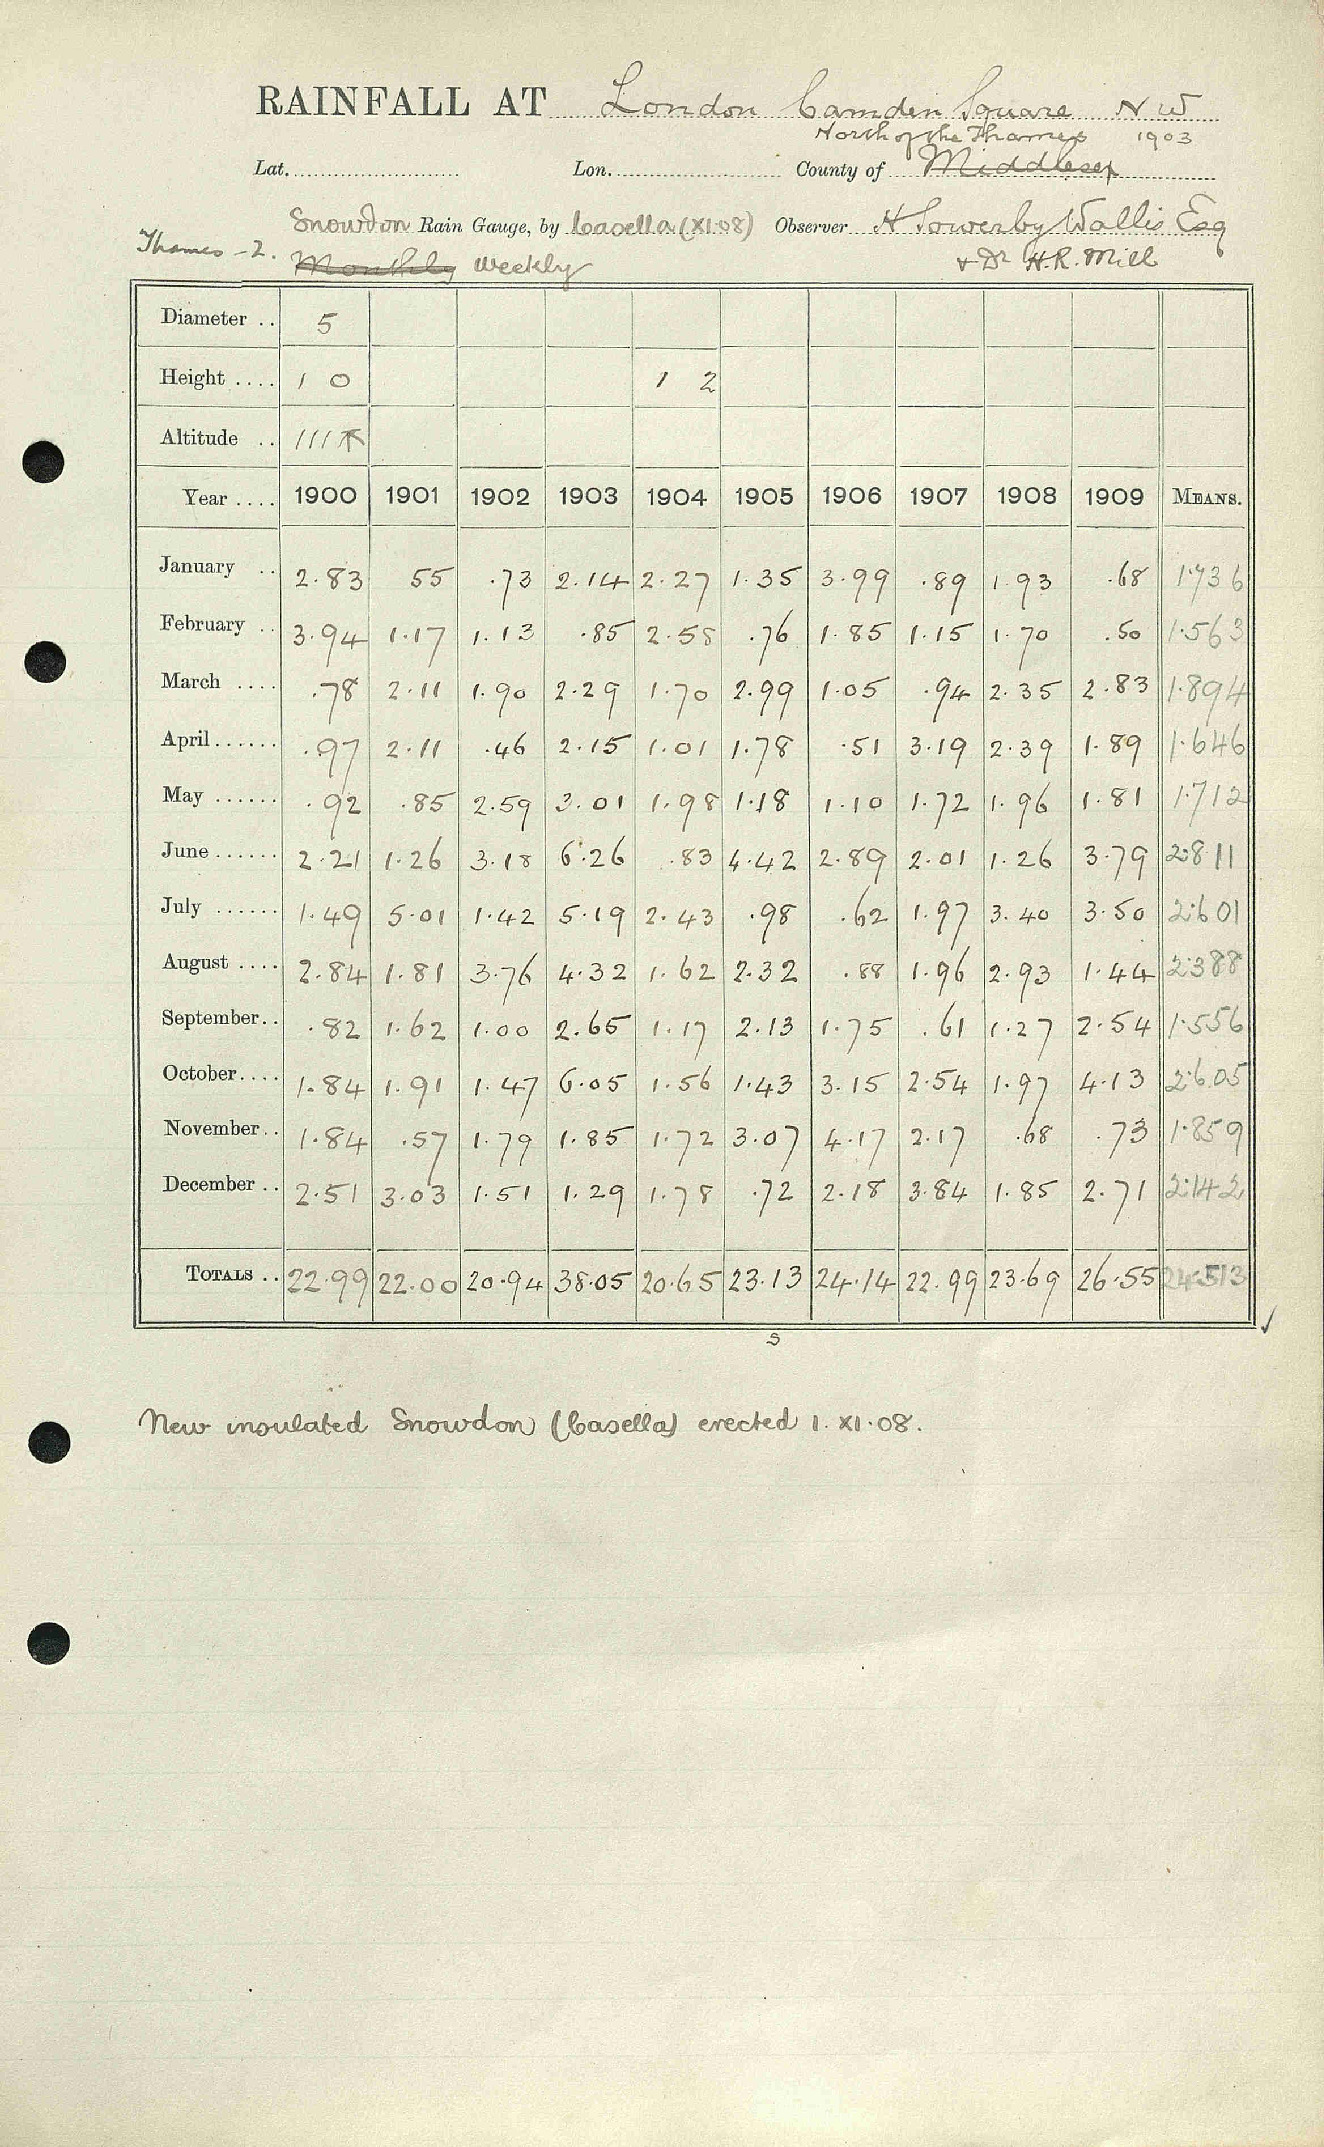 RAINFALL AT London Camden Square NW
North of the Thames 1903
Lat. Lon. County of Middlesex
Snowdon Rain Gauge, by Casella (XI.08) Observer H Sowerby Wallis Esq
Thames - 2. Monthly weekly + Dr H.R. Mill
Diameter .. 5
Height .... 1 0 1 2
Altitude .. 111
Year .... 1900 1901 1902 1903 1904 1905 1906 1907 1908 1909 MEANS.
January .. 2.83 55 .73 2.14 2.27 1.35 3.99 .89 1.93 .68 1.736
February .. 3.94 1.17 1.13 .85 2.58 .76 1.85 1.15 1.70 .50 1.563
March .... .78 2.11 1.90 2.29 1.70 2.99 1.05 .94 2.35 2.83 1.894
April...... .97 2.11 .46 2.15 1.01 1.78 .51 3.19 2.39 1.89 1.646
May ...... .92 .85 2.59 3.01 1.98 1.18 1.10 1.72 1.96 1.81 1.712
June ...... 2.21 1.26 3.18 6.26 .83 4.42 2.89 2.01 1.26 3.79 2.811
July ...... 1.49 5.01 1.42 5.19 2.43 .98 .62 1.97 3.40 3.50 2.601
August .... 2.84 1.81 3.76 4.32 1.62 2.32 .88 1.96 2.93 1.44 2.388
September.. .82 1.62 1.00 2.65 1.17 2.13 1.75 .61 1.27 2.54 1.556
October.... 1.84 1.91 1.47 6.05 1.56 1.43 3.15 2.54 1.97 4.13 2.605
November.. 1.84 .57 1.79 1.85 1.72 3.07 4.17 2.17 .68 .73 1.859
December .. 2.51 3.03 1.51 1.29 1.78 .72 2.18 3.84 1.85 2.71 2.142
TOTALS .. 22.99 22.00 20.94 38.05 20.65 23.13 24.14 22.99 23.69 26.55 24.513
s
New insulated Snowdon (Casella) erected 1.XI.08.